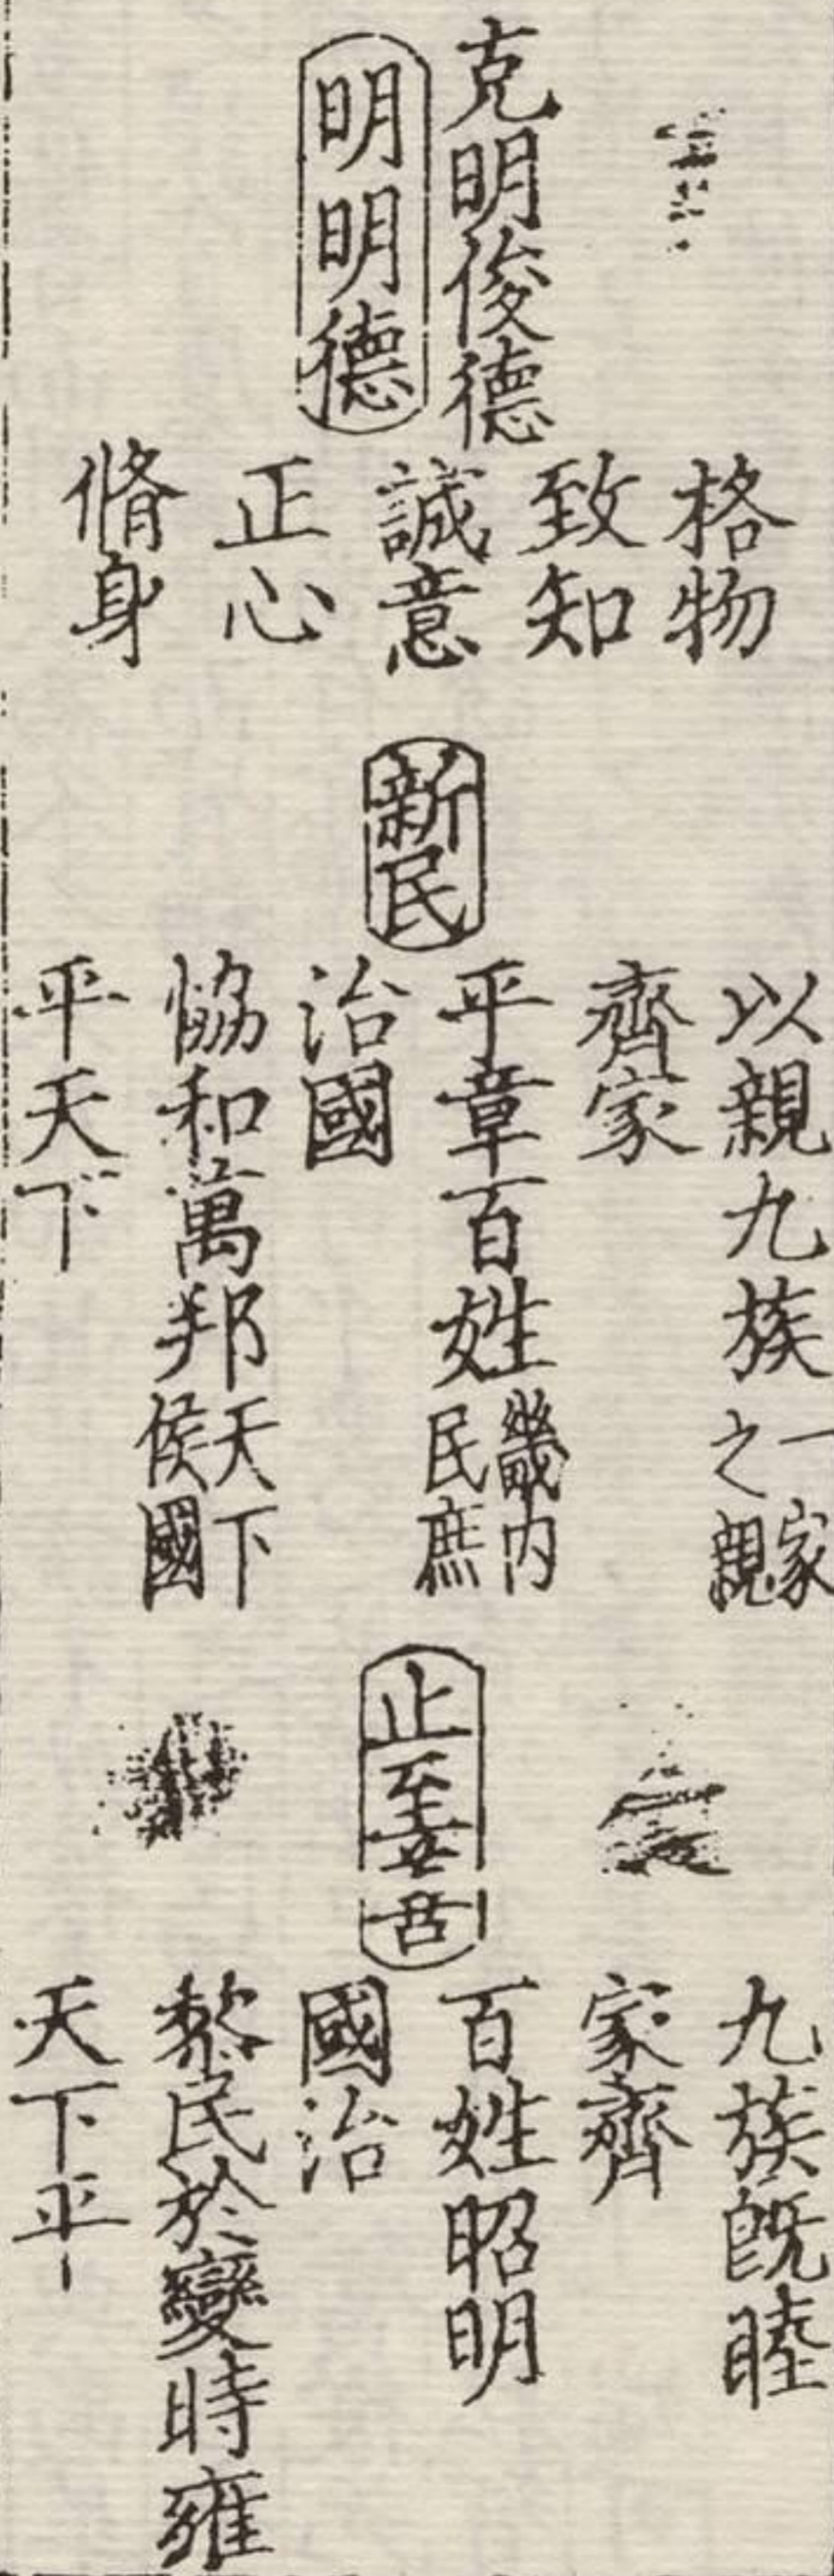 克明俊德
明明德
格物
致知
誠意
正心
脩身
新民
以親九族一家之親
齊家
平章百姓畿内民庶
治國
恊和萬邦天下侯國
平天下
止至善
九族旣睦
家齊
百姓昭明
國治
黎民於變時雍
天下平